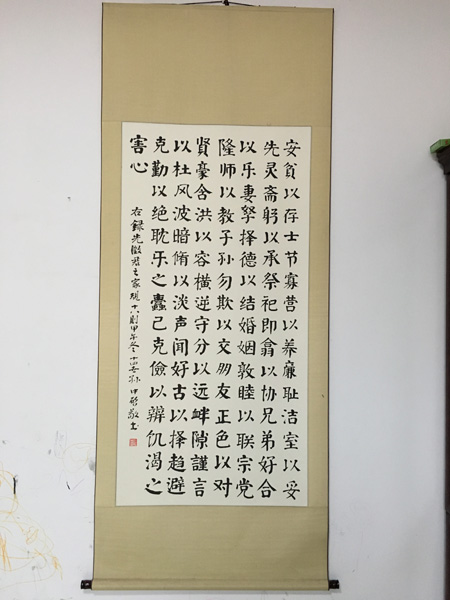 安貧以存士节寡营以养廉耻洁室以妥
先灵斋躬以承祭祀即翕以协兄弟好合
以乐妻孥择德以结婚姻敦睦以联宗党
隆师以教子孙勿欺以交朋友正色以对
賢豪含洪以容横逆守分以远衅隙謹言
以杜风波暗脩以淡声闻好古以择趋避
克勤以绝耽乐之蠹己克儉以辨饥渴之
害心
右録先徵君之家规十八则甲午冬孙中敬书